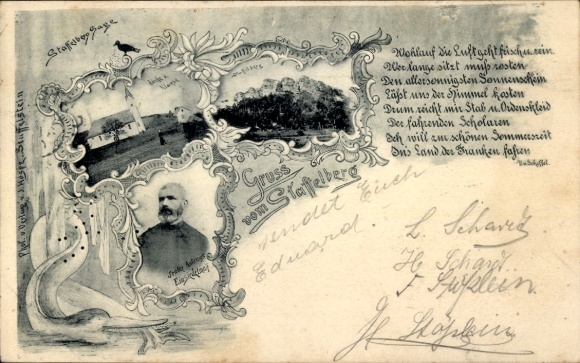 Staffelberg Sage
Wohlauf die Luft geht frisch u. rein
Wer lange sitzt muß rosten
Den allersonnigsten Sonnenschein
Läßt uns der Himmel kosten
Drum reicht mir Stab u. Ordenskleid
Der fahrenden Scholaren
Ich will zu schönen Sommerszeit
Ins Land der Franken fahren
V. v. Scheffel.
Gruss
vom Staffelberg
sendet Euch
Eduard.
Einsiedler
Staffelstein
L. Schardt
H. Schardt